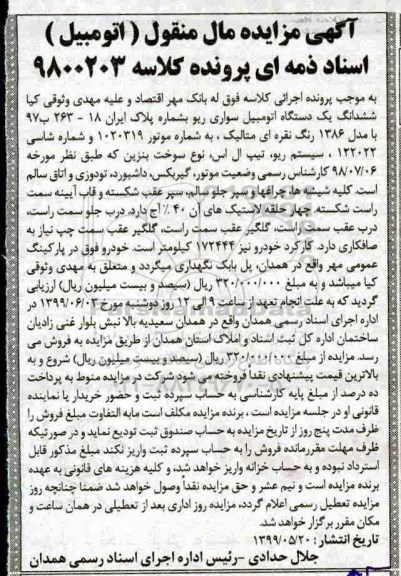 آگهی مزایده مال منقول ( اتومبیل )
اسناد ذمه ای پرونده کلاسه ۹۸۰۰۲۰۳
به موجب پرونده اجرائی کلاسه فوق له بانک مهر اقتصاد و علیه مهدی وثوقی کیا
ششدانگ یک دستگاه اتومبیل سواری ریو بشماره پلاک ایران ۱۸ - ۲۶۳ ب۹۷
با مدل ۱۳۸۶ رنگ نقره ای متالیک ، به شماره موتور ۱۰۲۰۳۱۹ و شماره شاسی
۱۲۲۰۲۲ ، سیستم ریو، تیپ ال اس، نوع سوخت بنزین که طبق نظر مورخه
۹۸/۰۷/۰۶ کارشناس رسمی وضعیت موتور، گیربکس، داشبورد، تودوزی و اتاق سالم
است. کلیه شیشه ها، چراغها و سپر جلو سالم، سپر عقب شکسته و قاب آیینه سمت
راست شکسته. چهار حلقه لاستیک های آن ۴۰ ٪ آج دارد، درب جلو سمت راست،
درب عقب سمت راست، گلگیر عقب سمت راست، گلگیر عقب سمت چپ نیاز به
صافکاری دارد. کارکرد خودرو نیز ۱۷۲۴۴۴ کیلومتر است. خودرو فوق در پارکینگ
عمومی مهر واقع در همدان، پل بابک نگهداری میگردد و متعلق به مهدی وثوقی
کیا میباشد و به مبلغ ۳۲۰/۰۰۰/۰۰۰ ریال (سیصد و بیست میلیون ریال) ارزیابی
گردید که به علت انجام تعهد از ساعت ۹ الی ۱۲ روز دوشنبه مورخ ۱۳۹۹/۰۶/۰۳ در
اداره اجرای اسناد رسمی همدان واقع در همدان سعیدیه بالا نبش بلوار غنی زادیان
ساختمان اداره کل ثبت اسناد و املاک استان همدان از طریق مزایده به فروش می
رسد. مزایده از مبلغ ۳۲۰/۰۰۰/۰۰۰ ریال (سیصد و بیست میلیون ریال) شروع و به
بالاترین قیمت پیشنهادی نقداً فروخته می شود شرکت در مزایده منوط به پرداخت
ده درصد از مبلغ پایه کارشناسی به حساب سپرده ثبت و حضور خریدار یا نماینده
قانونی او در جلسه مزایده است ، برنده مزایده مکلف است مابه التفاوت مبلغ فروش را
ظرف مدت پنج روز از تاریخ مزایده به حساب صندوق ثبت تودیع نماید و در صورتیکه
ظرف مهلت مقرر مانده فروش را به حساب سپرده ثبت واریز نکند مبلغ مذکور قابل
استرداد نبوده و به حساب خزانه واریز خواهد شد، و کلیه هزینه های قانونی به عهده
برنده مزایده است و نیم عشر و حق مزایده نقداً وصول خواهد شد ضمنا چنانچه روز
مزایده تعطیل رسمی اعلام گردد، مزایده روز اداری بعد از تعطیلی در همان ساعت و
مکان مقرر برگزار خواهد شد.
تاریخ انتشار : ۱۳۹۹/۰۵/۲۰
جلال حدادی -رئیس اداره اجرای اسناد رسمی همدان